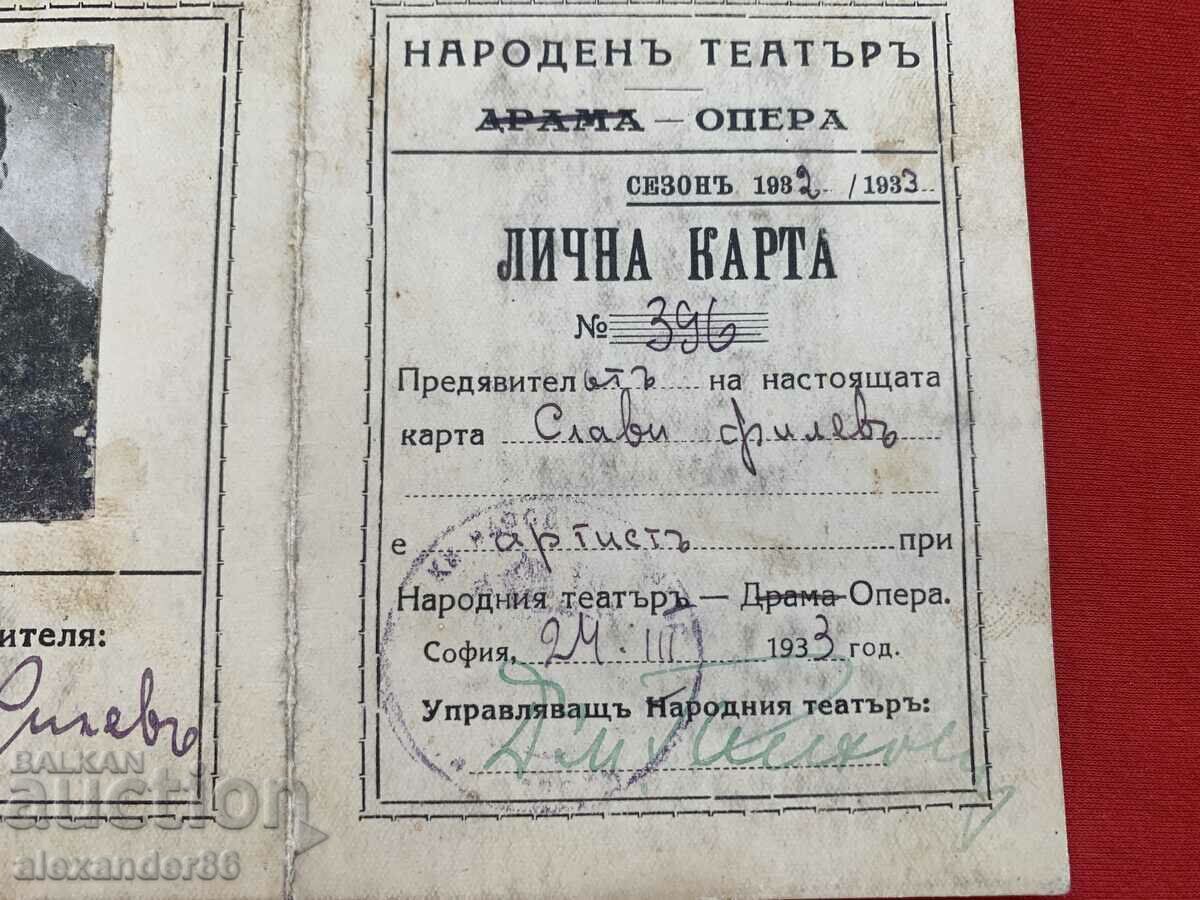 НАРОДЕНЪ ТЕАТЪРЪ
ДРАМА — ОПЕРА
СЕЗОНЪ 1932 / 1933
ЛИЧНА КАРТА
№ 396
Предявителятъ на настоящата
карта Слави Филевъ
е артистъ при
Народния театъръ — Драма-Опера.
София, 24. III 1933 год.
Управляващъ Народния театъръ:
ителя:
Филевъ
BALKAN
auction
alexander86